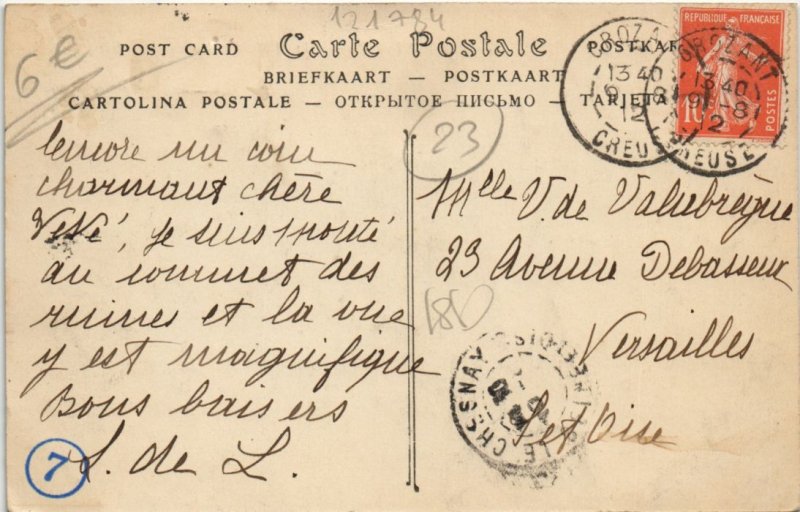 121784
6€
POST CARD Carte Postale POSTKAR
BRIEFKAART — POSTKAART
CARTOLINA POSTALE — ОТКРЫТОЕ ПИСЬМО — TARJETA
REPUBLIQUE FRANÇAISE
10
POSTES
CROZANT
13 40
9 -8
12
CREUSE
CROZANT
13 40
9 -8
12
CREUSE
23
Encore un coin
charmant chère
Vévé, je suis monté
au sommet des
ruines et la vue
y est magnifique
Bons baisers
S. de L.
7
Mlle V. de Valubrègue
23 Avenue Debasseux
Versailles
S et Oise
LE CHESNAY
SEINE-ET-OISE